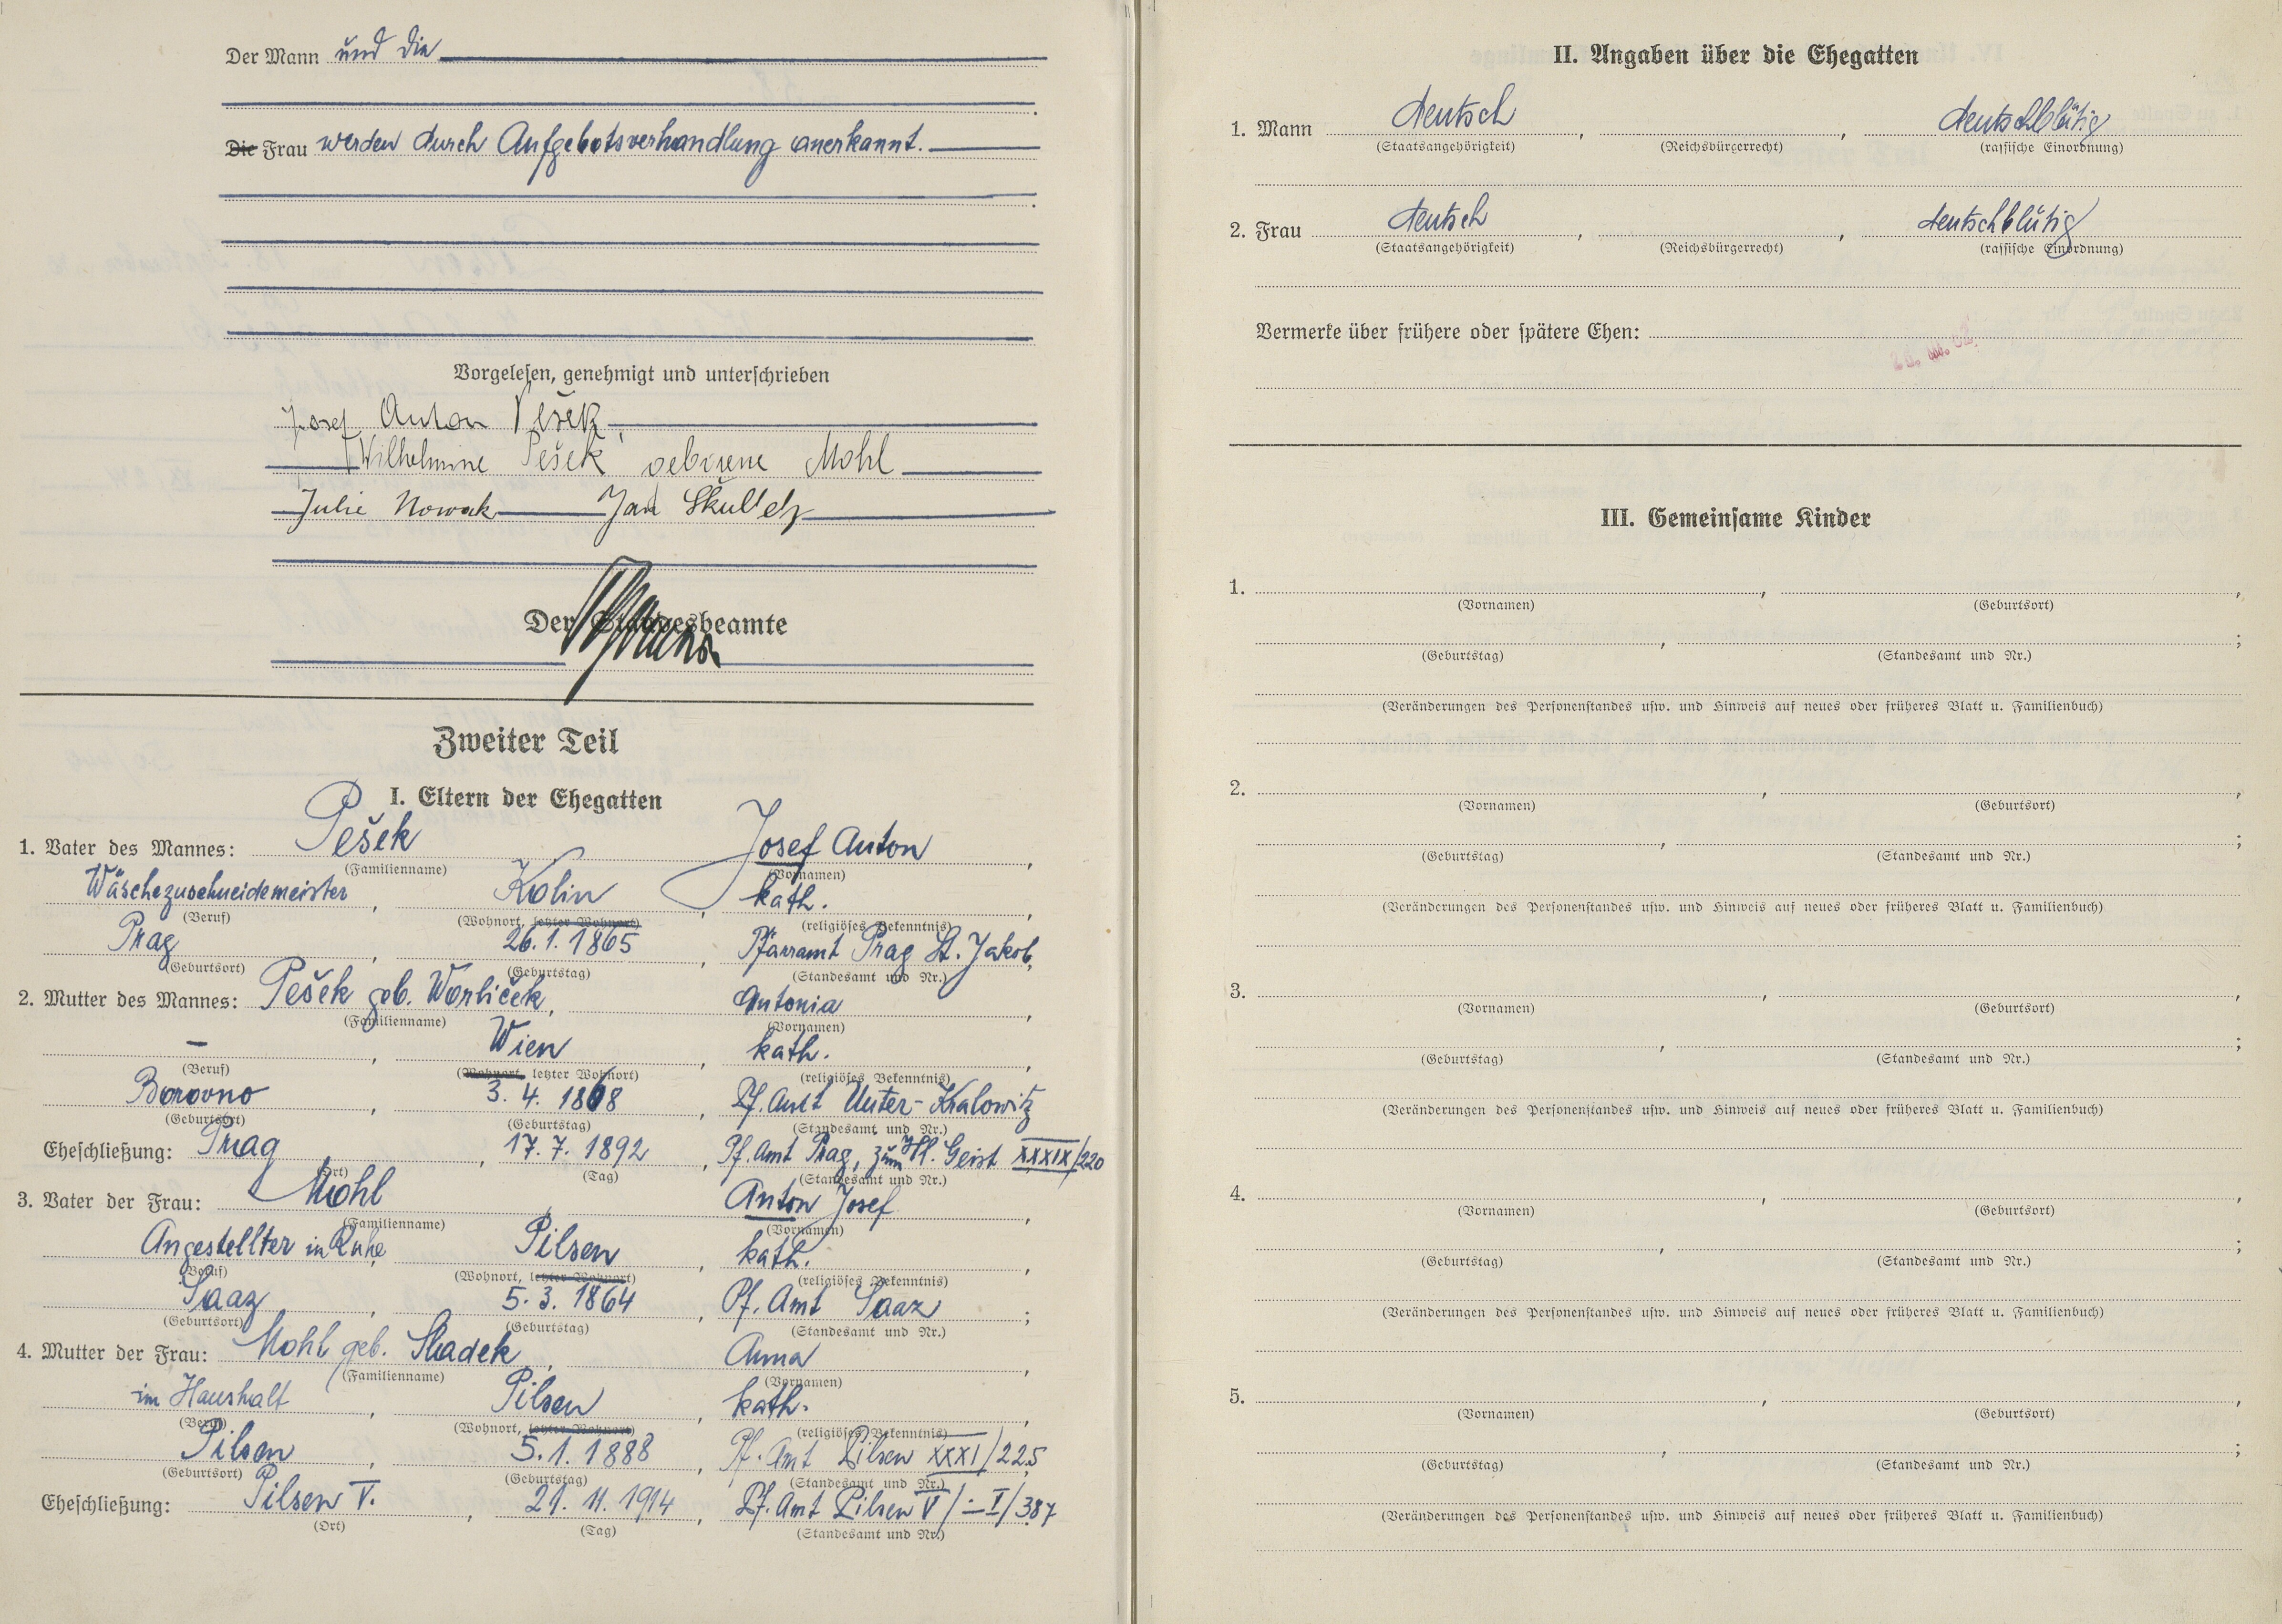 Der Mann und die
Die Frau werden durch Aufgebotsverhandlung anerkannt.
Vorgelesen, genehmigt und unterschrieben
Josef Anton Pešek,
Wilhelmine Pešek geborene Mohl
Julie Nowak Jan Škultety
Der Standesbeamte
Zweiter Teil
I. Eltern der Ehegatten
1. Vater des Mannes: Pešek Josef Anton,
(Familienname) (Vornamen)
Wäschezuschneidemeister, Kolin, kath.,
(Beruf) (Wohnort, letzter Wohnort) (religiöses Bekenntnis)
Prag, 26.1.1865, Pfarramt Prag St. Jakob,
(Geburtsort) (Geburtstag) (Standesamt und Nr.)
2. Mutter des Mannes: Pešek geb. Worliček, Antonia,
(Familienname) (Vornamen)
–, Wien, kath.,
(Beruf) (Wohnort, letzter Wohnort) (religiöses Bekenntnis)
Borovno, 3. 4. 1868, Pf. Amt Unter-Kralowitz
(Geburtsort) (Geburtstag) (Standesamt und Nr.)
Eheschließung: Prag, 17. 7. 1892, Pf. Amt Prag, zum Hl. Geist XXXIX/220
(Ort) (Tag) (Standesamt und Nr.)
3. Vater der Frau: Mohl, Anton Josef,
(Familienname) (Vornamen)
Angestellter in Ruhe, Pilsen, kath.,
(Beruf) (Wohnort, letzter Wohnort) (religiöses Bekenntnis)
Saaz, 5. 3. 1864, Pf. Amt Saaz;
(Geburtsort) (Geburtstag) (Standesamt und Nr.)
4. Mutter der Frau: Mohl geb. Sladek, Anna,
(Familienname) (Vornamen)
im Haushalt, Pilsen, kath.,
(Beruf) (Wohnort, letzter Wohnort) (religiöses Bekenntnis)
Pilsen, 5. 1. 1888, Pf. Amt Pilsen XXXI/225
(Geburtsort) (Geburtstag) (Standesamt und Nr.)
Eheschließung: Pilsen V., 21. 11. 1914, Pf. Amt Pilsen V/–I/387
(Ort) (Tag) (Standesamt und Nr.)
II. Angaben über die Ehegatten
1. Mann deutsch, , deutschblütig
(Staatsangehörigkeit) (Reichsbürgerrecht) (rassische Einordnung)
2. Frau deutsch, , deutschblütig
(Staatsangehörigkeit) (Reichsbürgerrecht) (rassische Einordnung)
Vermerke über frühere oder spätere Ehen:
III. Gemeinsame Kinder
1. , ,
(Vornamen) (Geburtsort)
, ;
(Geburtstag) (Standesamt und Nr.)
(Veränderungen des Personenstandes usw. und Hinweis auf neues oder früheres Blatt u. Familienbuch)
2. , ,
(Vornamen) (Geburtsort)
, ;
(Geburtstag) (Standesamt und Nr.)
(Veränderungen des Personenstandes usw. und Hinweis auf neues oder früheres Blatt u. Familienbuch)
3. , ,
(Vornamen) (Geburtsort)
, ;
(Geburtstag) (Standesamt und Nr.)
(Veränderungen des Personenstandes usw. und Hinweis auf neues oder früheres Blatt u. Familienbuch)
4. , ,
(Vornamen) (Geburtsort)
, ;
(Geburtstag) (Standesamt und Nr.)
(Veränderungen des Personenstandes usw. und Hinweis auf neues oder früheres Blatt u. Familienbuch)
5. , ,
(Vornamen) (Geburtsort)
, ;
(Geburtstag) (Standesamt und Nr.)
(Veränderungen des Personenstandes usw. und Hinweis auf neues oder früheres Blatt u. Familienbuch)